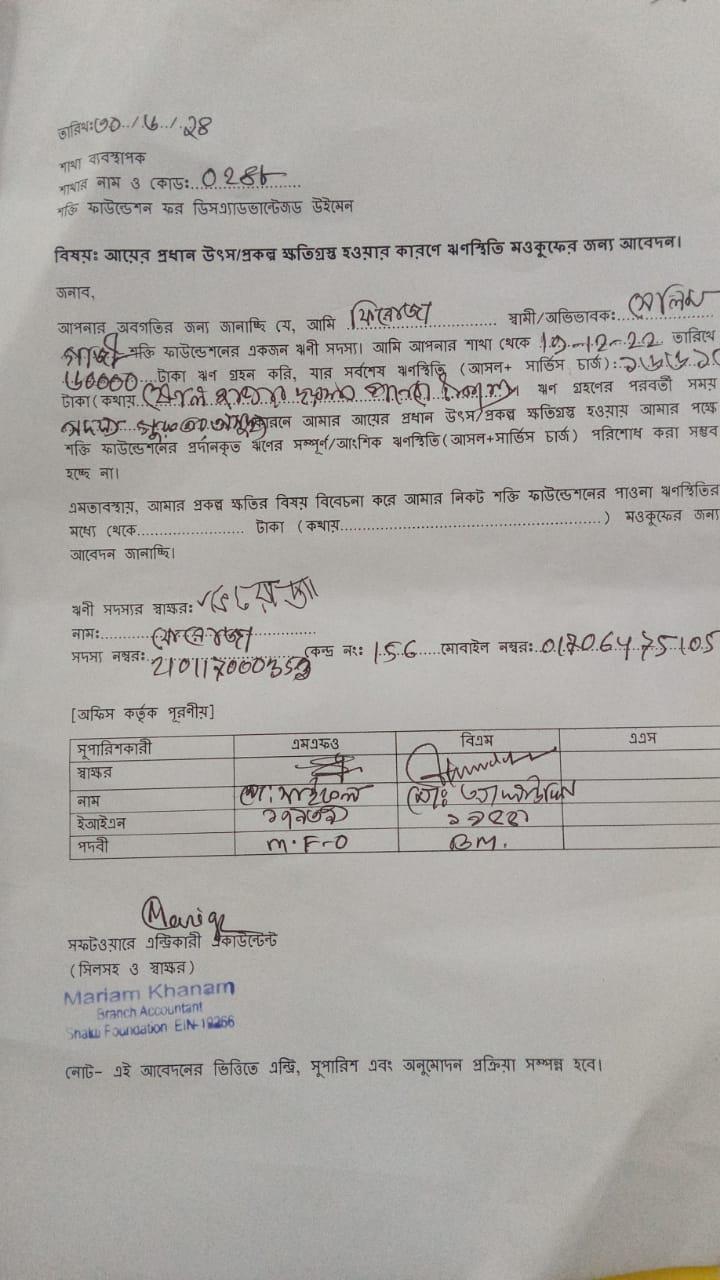 তারিখ:৩০../.৬../.২৪
শাখা ব্যবস্থাপক
শাখার নাম ও কোড:...0286...
শক্তি ফাউন্ডেশন ফর ডিসএ্যাডভান্টেজড উইমেন
বিষয়: আয়ের প্রধান উৎস/প্রকল্প ক্ষতিগ্রস্ত হওয়ার কারণে ঋণস্থিতি মওকুফের জন্য আবেদন।
জনাব,
আপনার অবগতির জন্য জানাচ্ছি যে, আমি ফিরোজা স্বামী/অভিভাবক: সেলিম
শক্তি ফাউন্ডেশনের একজন ঋনী সদস্য। আমি আপনার শাখা থেকে 19-12-22 তারিখে
৬০০০০ টাকা ঋন গ্রহন করি, যার সর্বশেষ ঋনস্থিতি (আসল+ সার্ভিস চার্জ):
টাকা (কথায় ঋণ গ্রহনের পরবর্তী সময়
কারনে আমার আয়ের প্রধান উৎস/প্রকল্প ক্ষতিগ্রস্ত হওয়ায় আমার পক্ষে
শক্তি ফাউন্ডেশনের প্রদানকৃত ঋণের সম্পূর্ন/আংশিক ঋনস্থিতি (আসল+সার্ভিস চার্জ) পরিশোধ করা সম্ভব
হচ্ছে না।
এমতাবস্থায়, আমার প্রকল্প ক্ষতির বিষয় বিবেচনা করে আমার নিকট শক্তি ফাউন্ডেশনের পাওনা ঋনস্থিতির
মধ্যে থেকে........................ টাকা (কথায়..........................................................) মওকুফের জন্য
আবেদন জানাচ্ছি।
ঋনী সদস্যর স্বাক্ষর: ফিরোজা
নাম: ফেরোজা
সদস্য নম্বর: কেন্দ্র নং: 156 মোবাইল নম্বর: 01706475105
[অফিস কর্তৃক পূরনীয়]
সুপারিশকারী এমএফও বিএম এএম
স্বাক্ষর
নাম মো: সাইফুল মো:
ইআইএন
পদবী M.F-O BM.
সফটওয়্যারে এন্ট্রিকারী একাউন্টেন্ট
(সিলসহ ও স্বাক্ষর)
Mariam Khanam
Branch Accountant
Shakti Foundation EIN-19266
নোট- এই আবেদনের ভিত্তিতে এন্ট্রি, সুপারিশ এবং অনুমোদন প্রক্রিয়া সম্পন্ন হবে।